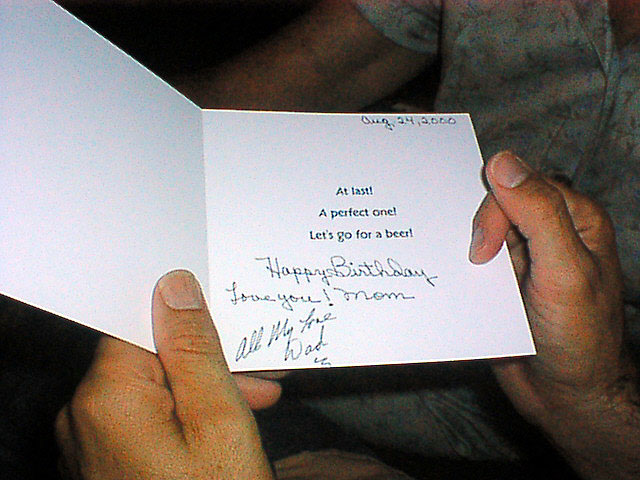 Aug. 24, 2000
At last!
A perfect one!
Let's go for a beer!
Happy Birthday
Love you! Mom
All My Love
Dad